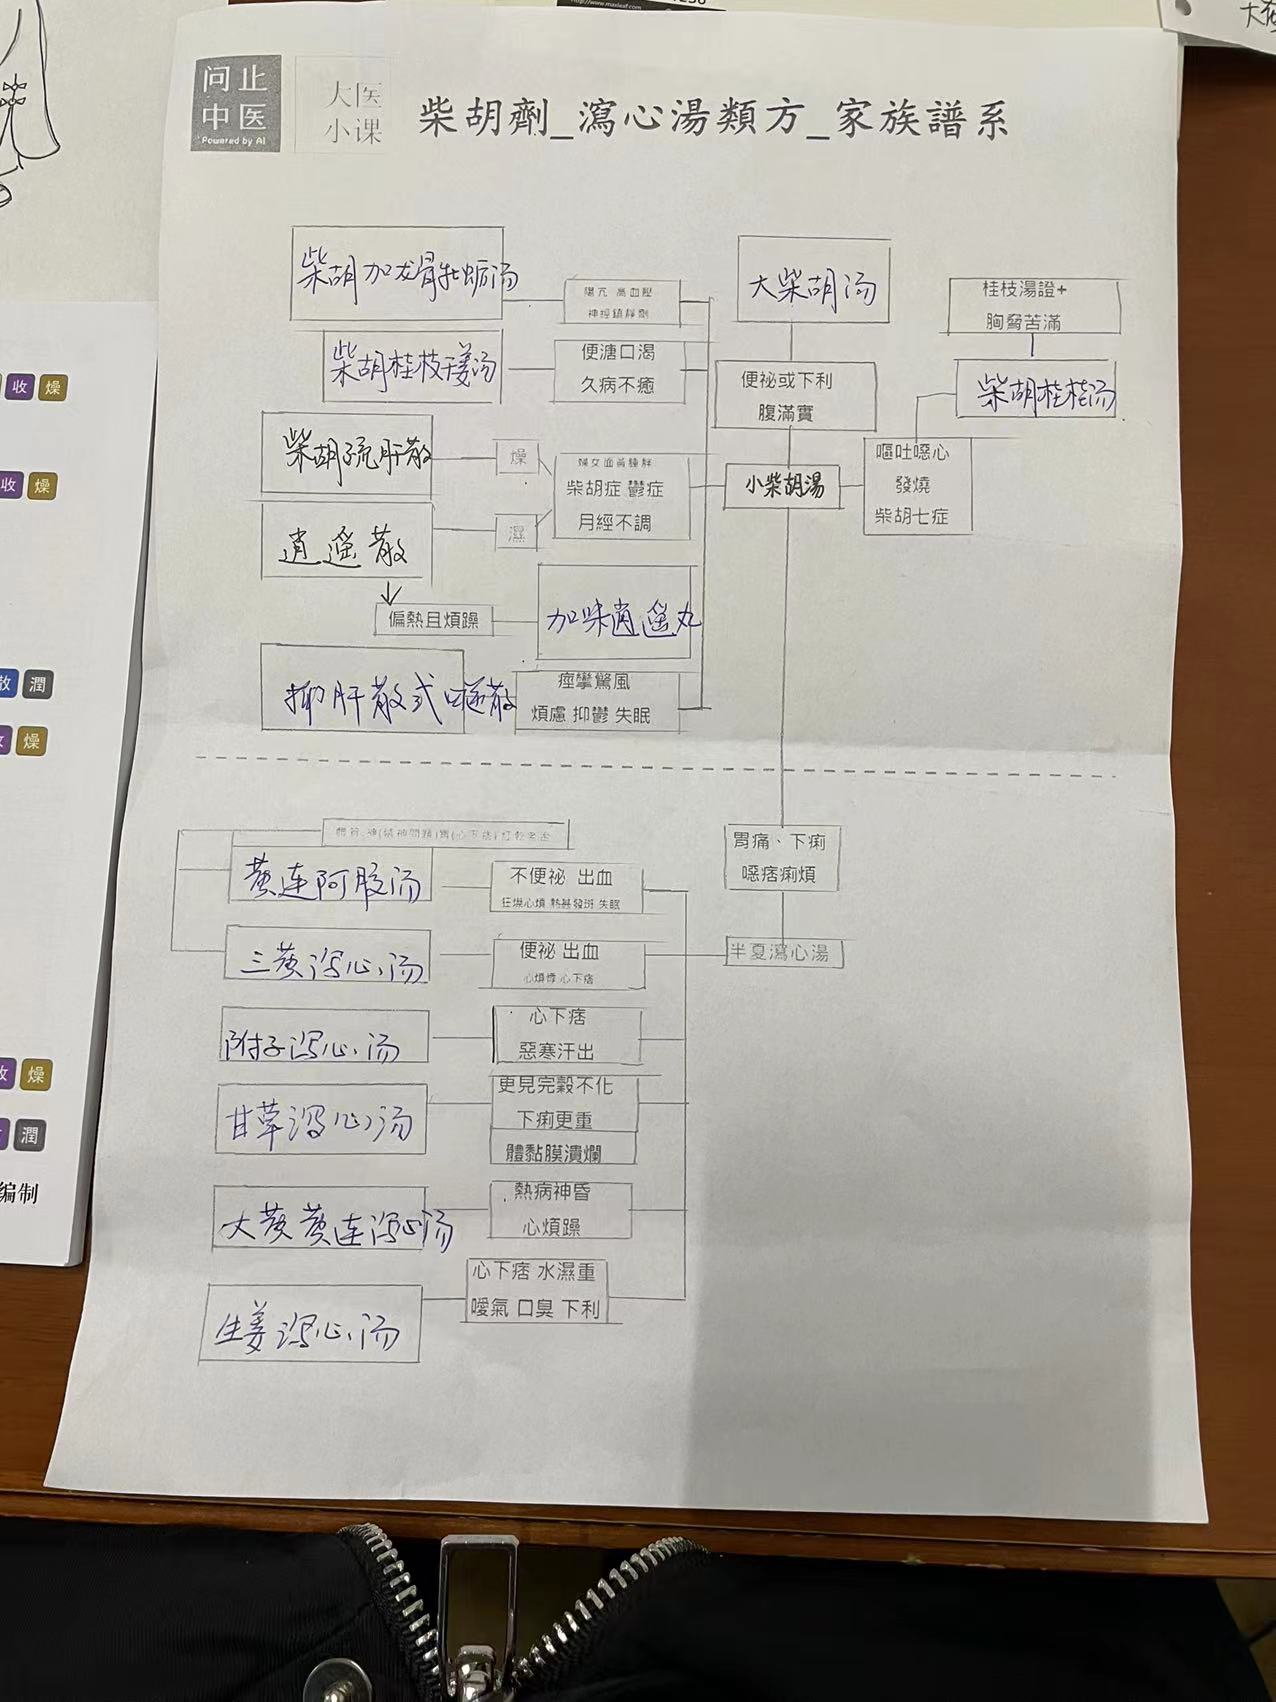 http://www.maxleaf.com
问止
中医
Powered by AI
大医
小课
柴胡劑_瀉心湯類方_家族譜系
柴胡加龙骨牡蛎汤
陽亢 高血壓
神經鎮靜劑
大柴胡汤
桂枝湯證+
胸脅苦滿
柴胡桂枝干姜汤
便溏口渴
久病不癒
便祕或下利
腹滿實
柴胡桂枝汤
收 燥
柴胡疏肝散
燥
婦女面黃腫胖
柴胡症 鬱症
月經不調
小柴胡湯
嘔吐噁心
發燒
柴胡七症
收 燥
逍遥散
濕
偏熱且煩躁
加味逍遥丸
抑肝散或
痙攣驚風
煩慮 抑鬱 失眠
散 潤
燥
胃痛、下痢
噁痞痢煩
黄连阿胶汤
不便祕 出血
狂燥心煩 熱甚發斑 失眠
三黄泻心汤
便祕 出血
心煩悸 心下痞
半夏瀉心湯
附子泻心汤
心下痞
惡寒汗出
甘草泻心汤
更見完穀不化
下痢更重
體黏膜潰爛
收 燥
潤
大黄黄连泻心汤
熱病神昏
心煩躁
编制
生姜泻心汤
心下痞 水濕重
噯氣 口臭 下利